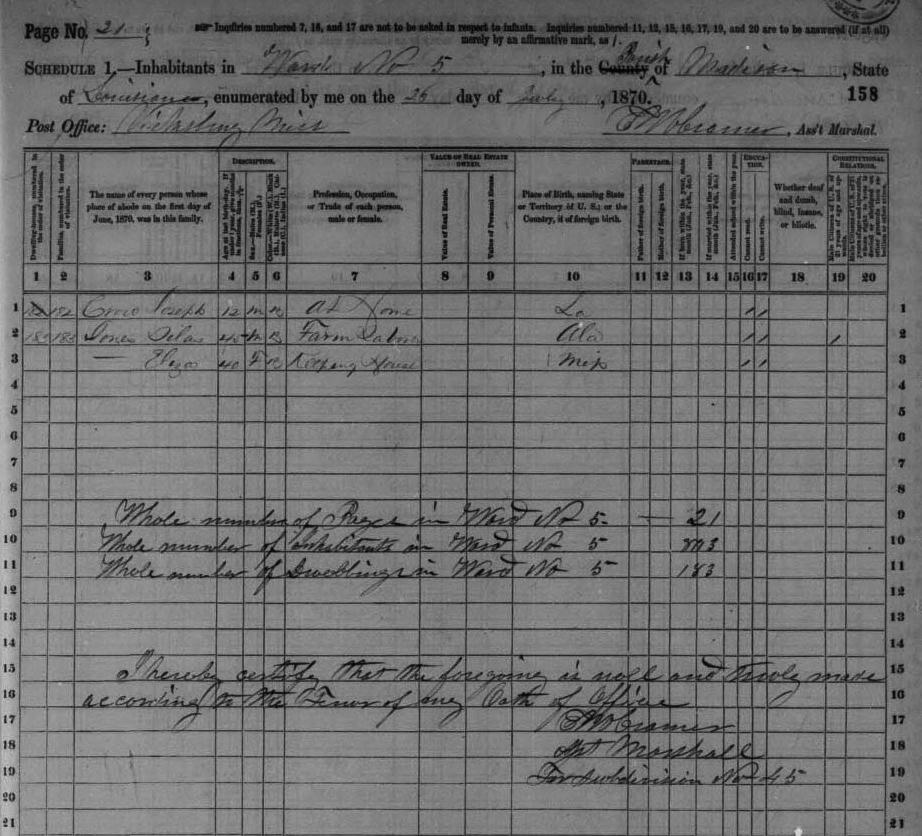 Page No. 21
Inquiries numbered 7, 16, and 17 are not to be asked in respect to infants. Inquiries numbered 11, 12, 15, 16, 17, 19, and 20 are to be answered (if at all) merely by an affirmative mark, as /.
SCHEDULE 1.—Inhabitants in Ward No 5, in the County Parish of Madison, State
of Louisiana, enumerated by me on the 25 day of July, 1870.
158
Post Office: Vicksburg Miss
Cramer, Ass't Marshal.
Dwelling-houses, numbered in the order of visitation.
Families, numbered in the order of visitation.
The name of every person whose place of abode on the first day of June, 1870, was in this family.
DESCRIPTION.
Profession, Occupation, or Trade of each person, male or female.
VALUE OF REAL ESTATE OWNED.
Value of Real Estate.
Value of Personal Estate.
Place of Birth, naming State or Territory of U. S.; or the Country, if of foreign birth.
PARENTAGE.
Father of foreign birth.
Mother of foreign birth.
If born within the year, state month (Jan., Feb., &c.)
If married within the year, state month (Jan., Feb., &c.)
Attended school within the year.
EDUCATION.
Cannot read.
Cannot write.
Whether deaf and dumb, blind, insane, or idiotic.
CONSTITUTIONAL RELATIONS.
1 2 3 4 5 6 7 8 9 10 11 12 13 14 15 16 17 18 19 20
1 182 Joseph 12 M B At Home La / / 1
2 183 Jones Silas 45 M B Farm Laborer Ala / / / 2
3 — Eliza 40 F B Keeping House Miss / / 3
4 4
5 5
6 6
7 7
8 8
9 Whole number of Pages in Ward No 5 — 21 9
10 Whole number of inhabitants in Ward No 5 10
11 Whole number of Dwellings in Ward No 5 183 11
12 12
13 13
14 14
15 I hereby certify that the foregoing is well and truly made 15
16 according to the Tenor of my Oath of Office 16
17 Cramer 17
18 Marshall 18
19 For Subdivision No 45 19
20 20
21 21